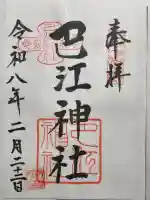 奉拝
巴江神社
令和八年二月二十二日